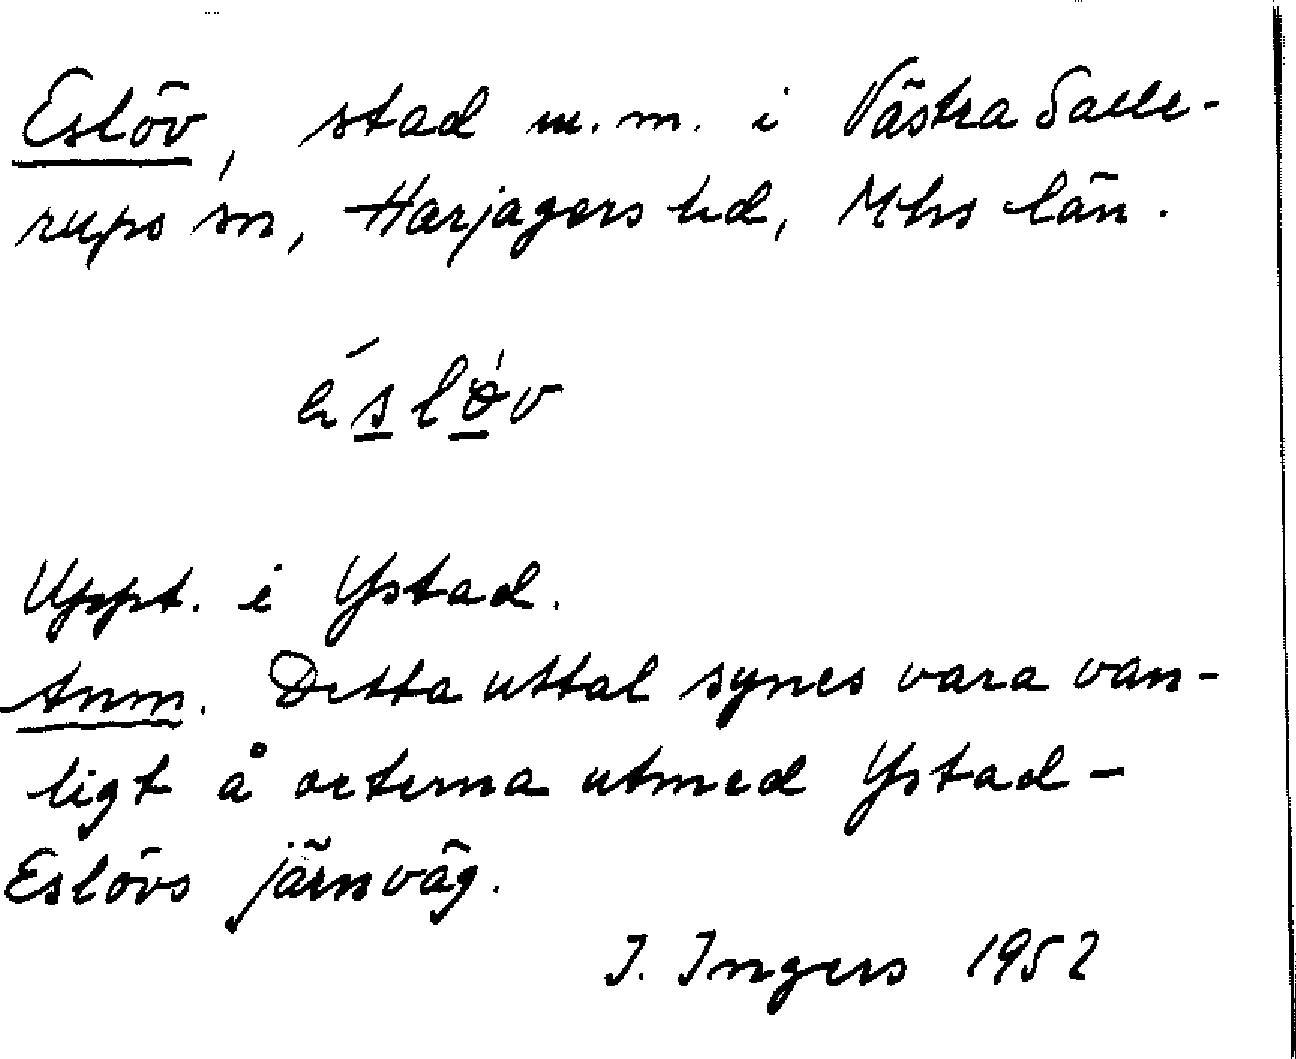 Eslöv, stad m.m. i Västra Salle-
rups sn, Harjagers hd, Mhs län.
éslöv
Uppt. i Ystad.
Anm. Detta uttal synes vara van-
ligt å orterna utmed Ystad-
Eslövs järnväg.
I. Ingers 1952